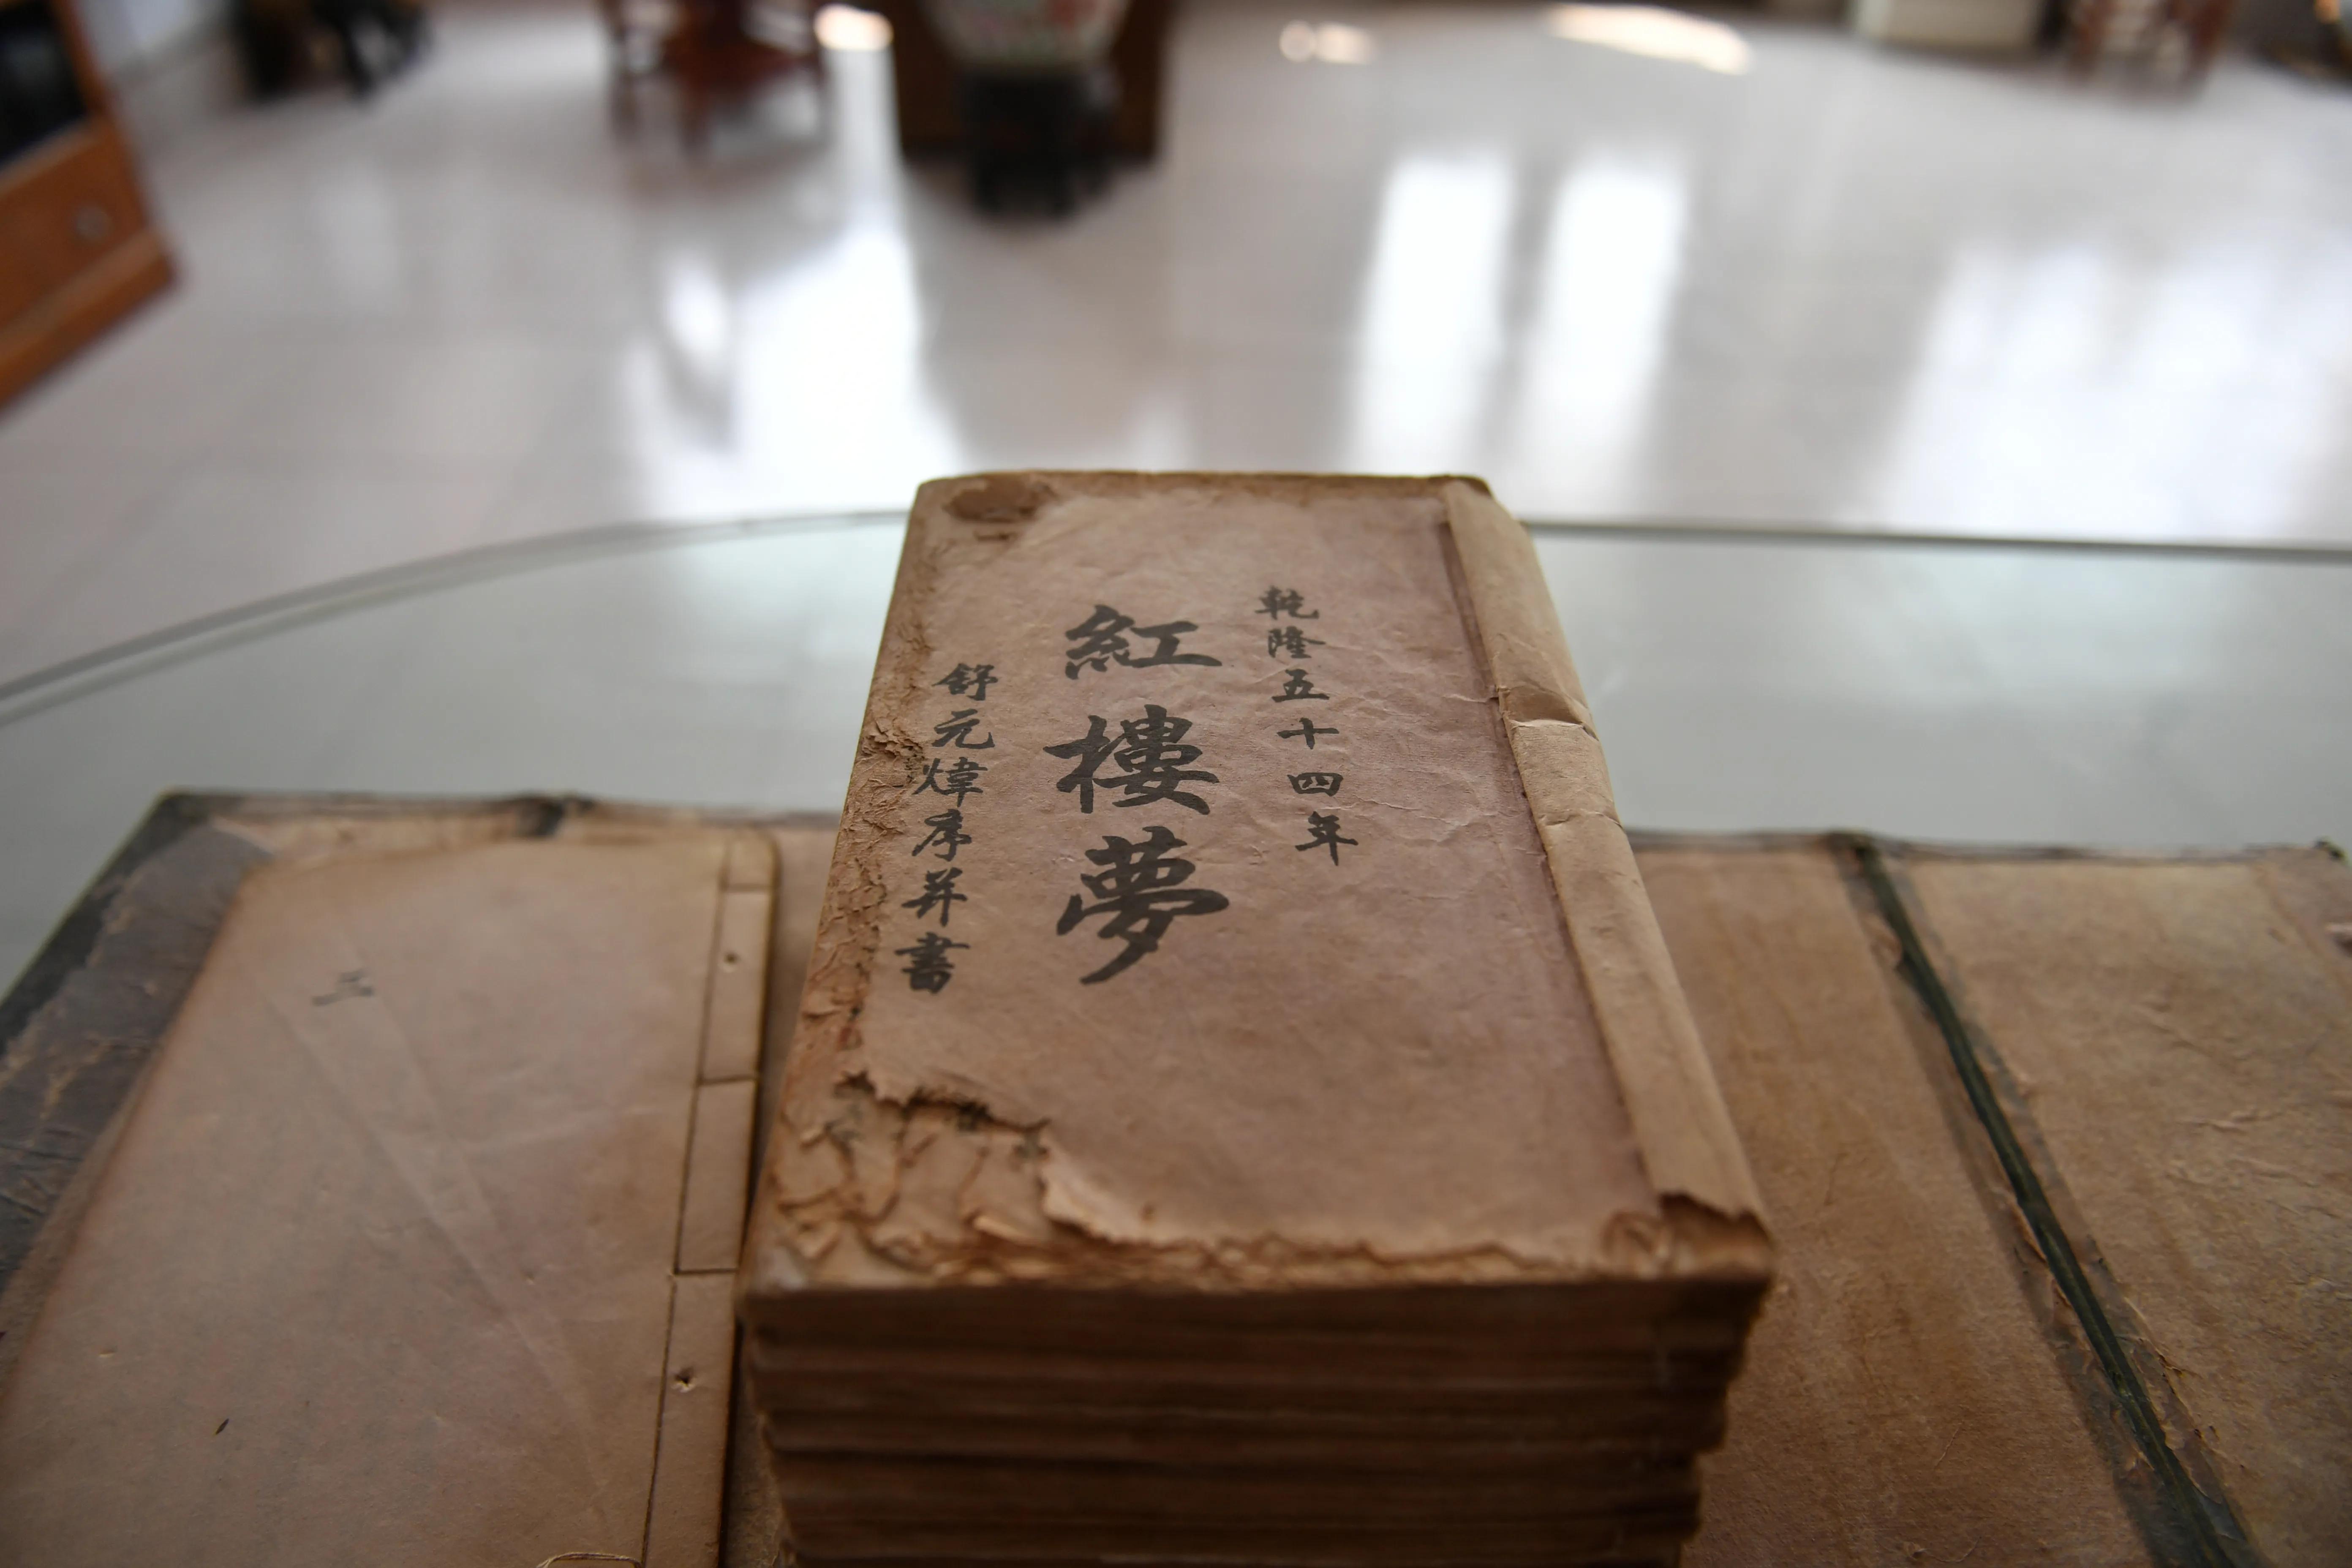 乾隆五十四年
紅樓夢
舒元煒序并書
三